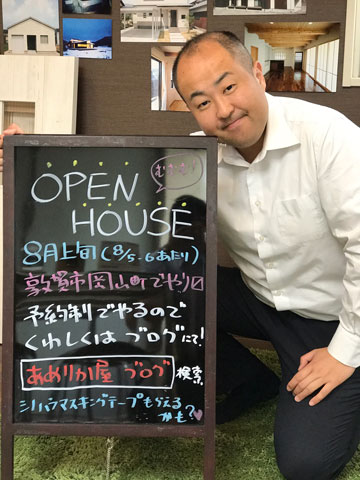 むふっ!
OPEN
HOUSE
8月上旬(8/5-6あたり)
敦賀市岡山町でやります
予約制でやるので
くわしくは ブログにて!
あめりか屋 ブログ 検索
シノハラマスキングテープもらえる
かも?